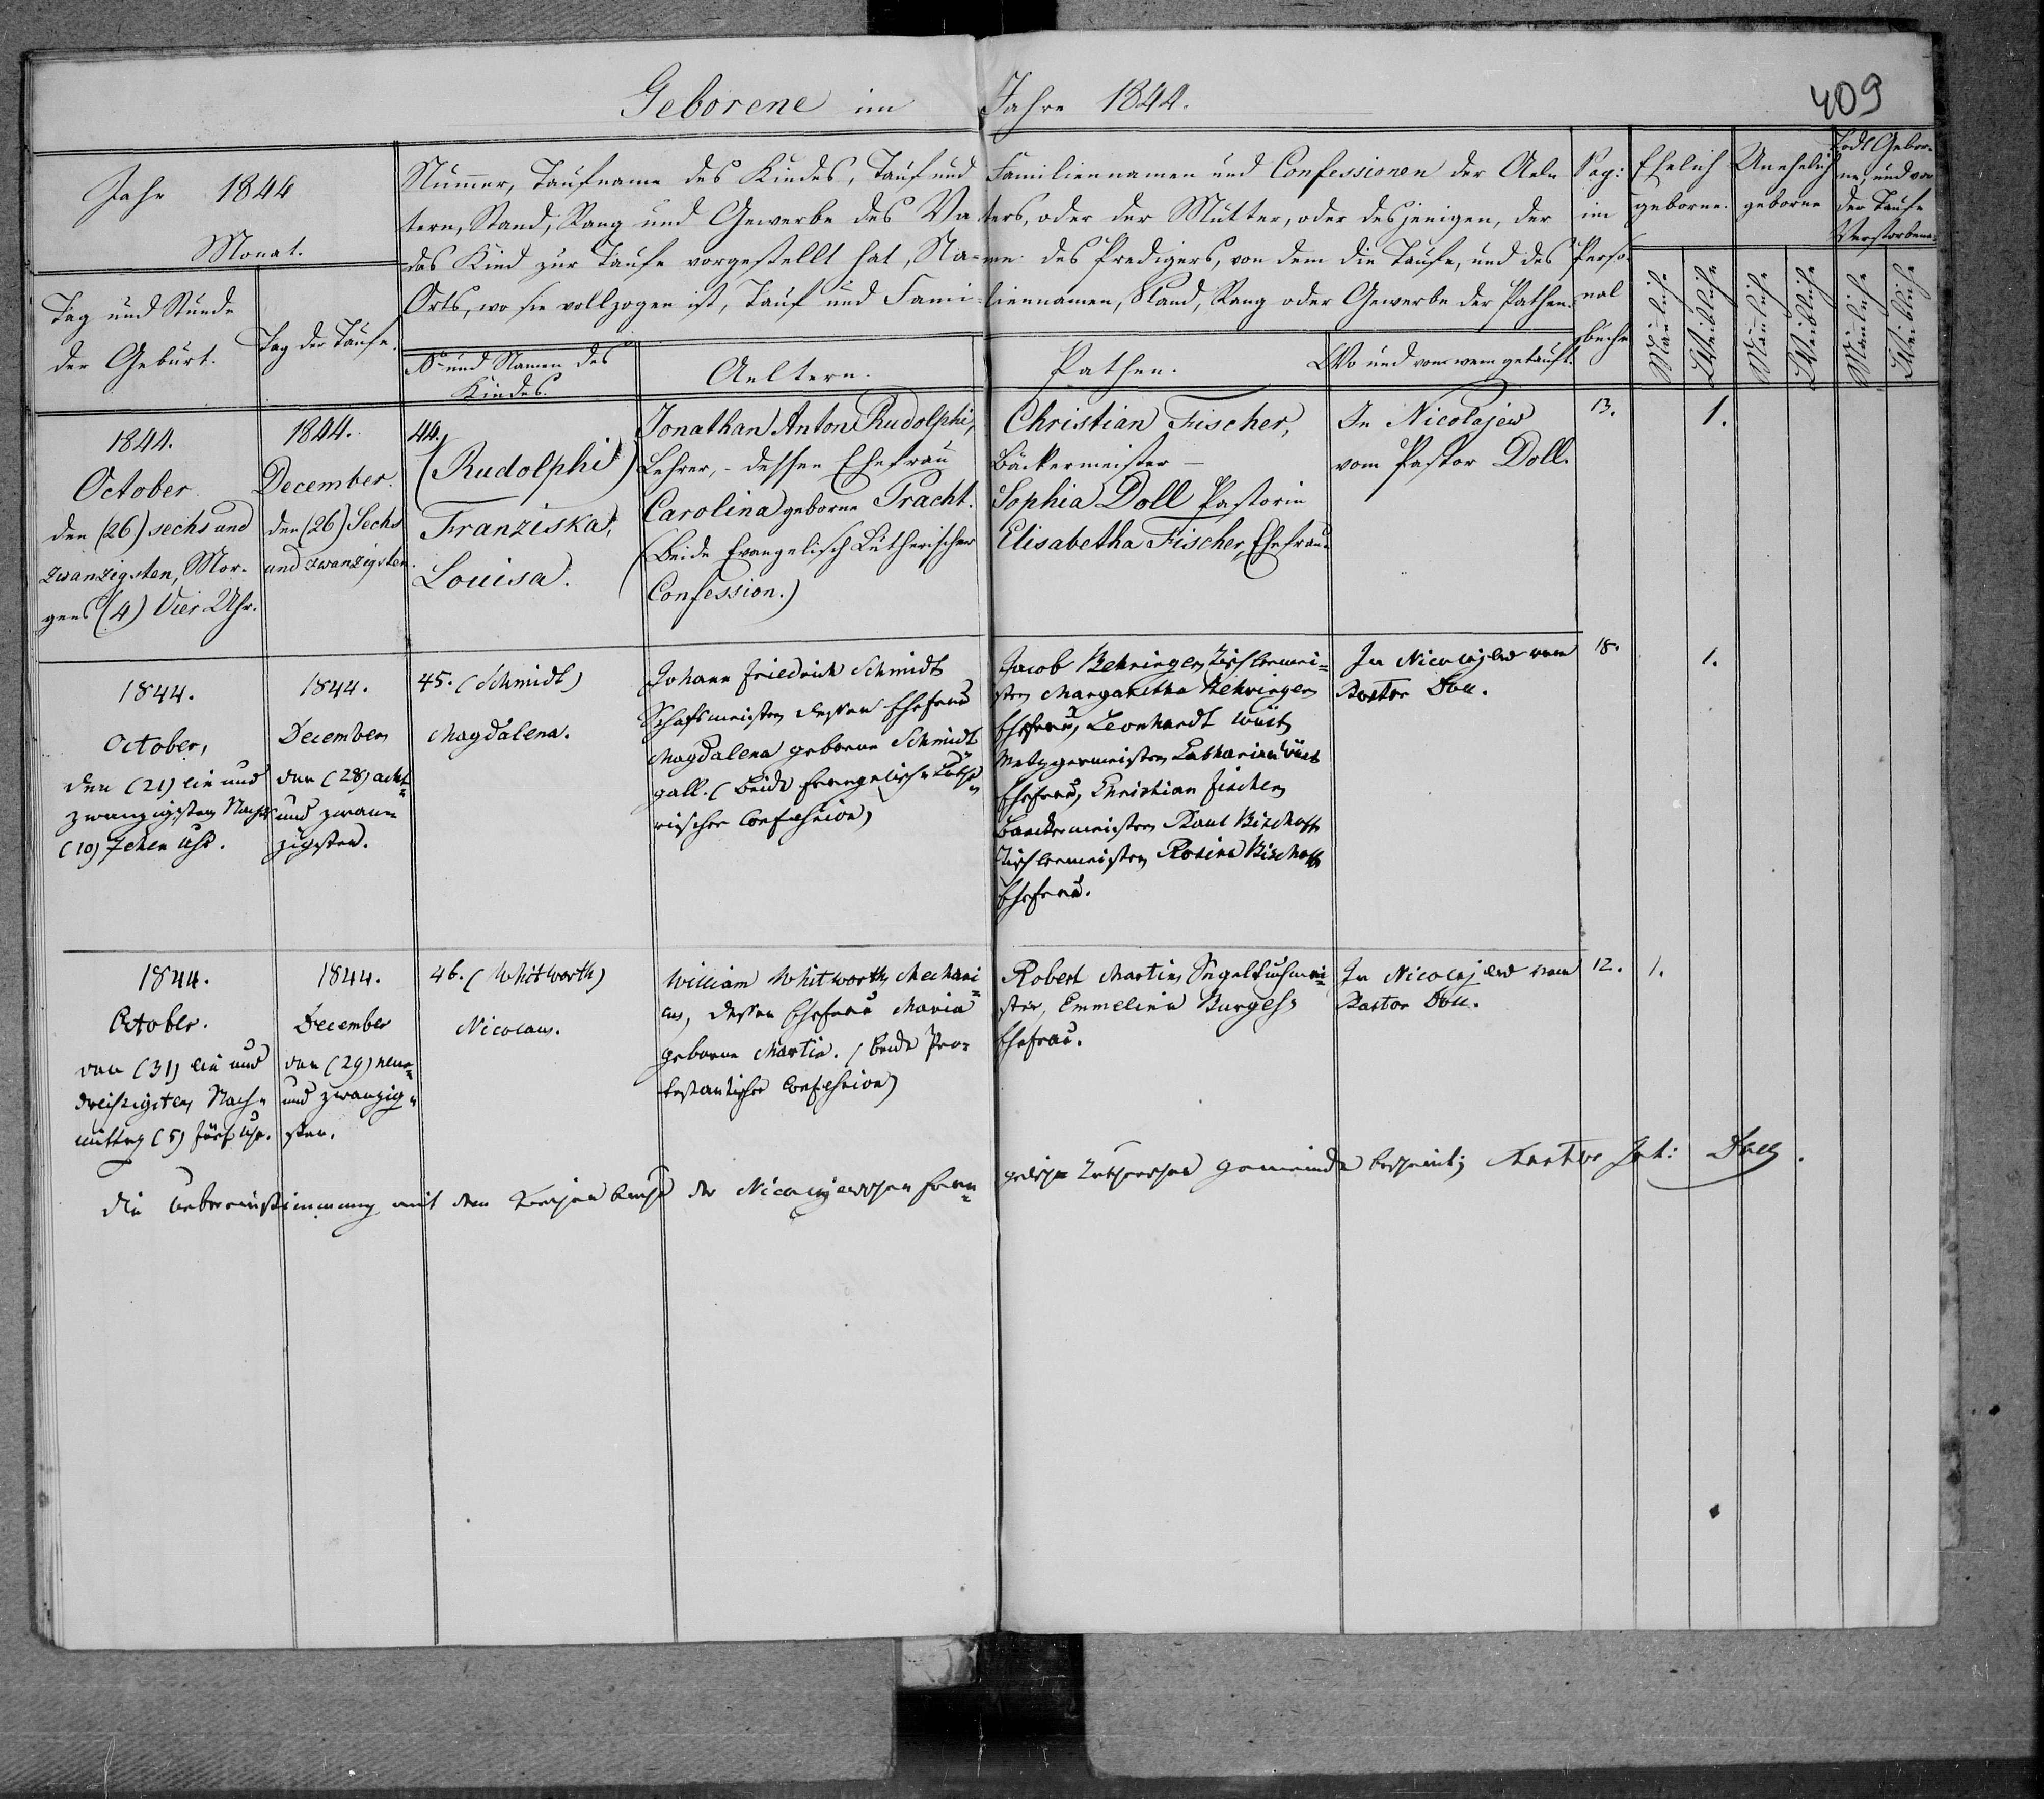 Geborene im Jahre 1844.
409
Jahr 1844
Monat.
Tag und Stunde
der Geburt.
Tag der Taufe.
Numer, Taufname des Kindes, Tauf und Familiennamen und Confessionen der Ael-
tern, Stand, Rang und Gewerbe des Vaters, oder der Mutter, oder desjenigen, der
das Kind zur Taufe vorgestellt hat, Name des Predigers, von dem die Taufe, und des
Orts, wo sie vollzogen ist, Tauf und Familiennamen, Stand, Rang oder Gewerbe der Pathen.
No und Namen des
Kindes.
Aeltern.
Pathen.
Wo und von wem getauft.
Pag:
im
Perso-
nal
buche
Ehelich
geborne.
Unehelich
geborne
Todt Gebor-
ne, und vor
der Taufe
Verstorbene.
Mänliche
Weibliche
Mänliche
Weibliche
Mänliche
Weibliche
1844.
October
den (26) sechs und
zwanzigsten, Mor-
gens (4) Vier Uhr.
1844.
December.
den (26) Sechs
und zwanzigsten.
44.
(Rudolphi)
Franziska,
Louisa.
Jonathan Anton Rudolphi,
Lehrer, - dessen Ehefrau
Carolina geborne Tracht.
(Beide Evangelisch Lutherischer
Confession.)
Christian Fischer,
Bäckermeister -
Sophia Doll Pastorin
Elisabetha Fischer, Ehefrau.
In Nicolajew
vom Pastor Doll.
13.
1.
1844.
October,
den (21) ein und
zwanzigsten Nachts
(10) Zehen Uhr.
1844.
December
den (28) acht=
und zwan=
zigsten.
45. (Schmidt)
Magdalena.
Johann Friedrich Schmidt
Schafmeister dessen Ehefrau
Magdalena geborne Schmidt
gall. (Beide Evangelisch Luthe=
rischer Confession)
Jacob Behringer Tischlermei=
ster Margaretha Behringer
Ehefrau, Leonhardt Wüst
Metzgermeister Catharina Wüst
Ehefrau, Christian Fischer
Baeckermeister Paul Bischoff
Tischlermeister Rosina Bischoff
Ehefrau.
In Nicolajew vom
Pastor Doll.
18.
1.
1844.
October.
den (31) ein und
dreißigsten Nach=
mittag (5) fünf Uhr.
1844.
December
den (29) neun=
und zwanzig=
sten.
46. (Whitworth)
Nicolaus.
William Whitworth Mechani=
cus, dessen Ehefrau Maria
geborne Martin. (Beide Pro=
testantischer Confession)
Robert Martin Segeltuchmei=
ster, Emmelina Burgess
Ehefrau.
In Nicolajew vom
Pastor Doll.
12.
1.
Die Uebereinstimmung mit dem Kirchenbuche der Nicolajewschen Evan=
gelisch Lutherschen Gemeinde bescheinigt Pastor Doll.